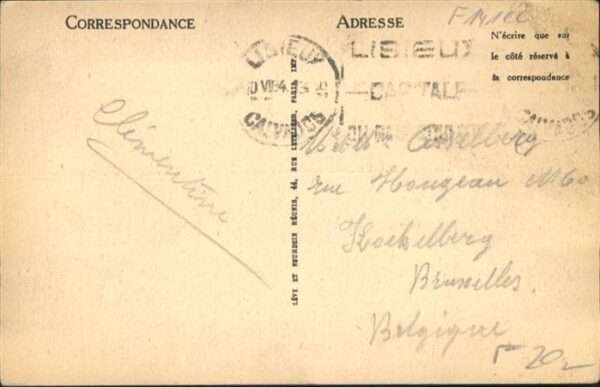 CORRESPONDANCE
ADRESSE
N'écrire que sur
le côté réservé à
la correspondance
LISIEUX
CALVADOS
LISIEUX
CAPITALE
DU
CALVADOS
Clémentine
LÉVY ET NEURDEIN RÉUNIS, 44, RUE LETELLIER, PARIS IMP.
rue
Koekelberg
Bruxelles.
Belgique
20